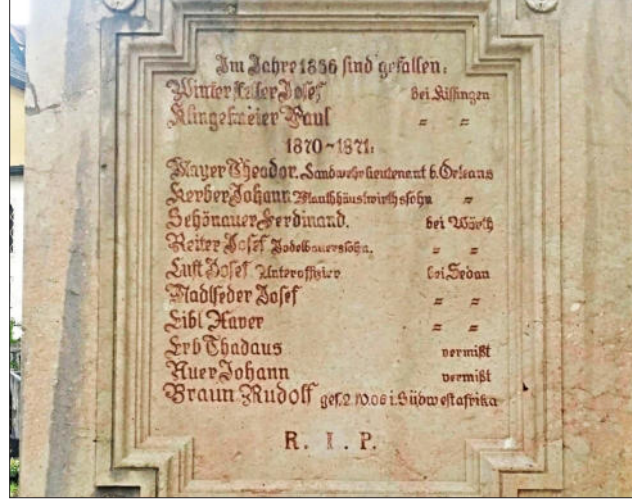 Im Jahre 1866 sind gefallen:
Josef bei Kissingen
Paul " "
1870-1871:
Mayer Theodor. Landwehrlieutenant b. Orleans
Kerber Johann Mauthhäuslwirthssohn "
Schönauer Ferdinand. bei Wörth
Reiter Josef Jodelbauerssohn. " "
Lust Josef Unteroffizier bei Sedan
Madlfeder Josef " "
Eibl Xaver " "
Erb Thadäus vermißt
Auer Johann vermißt
Braun Rudolf gef. 2.10.06 i. Südwestafrika
R. I. P.